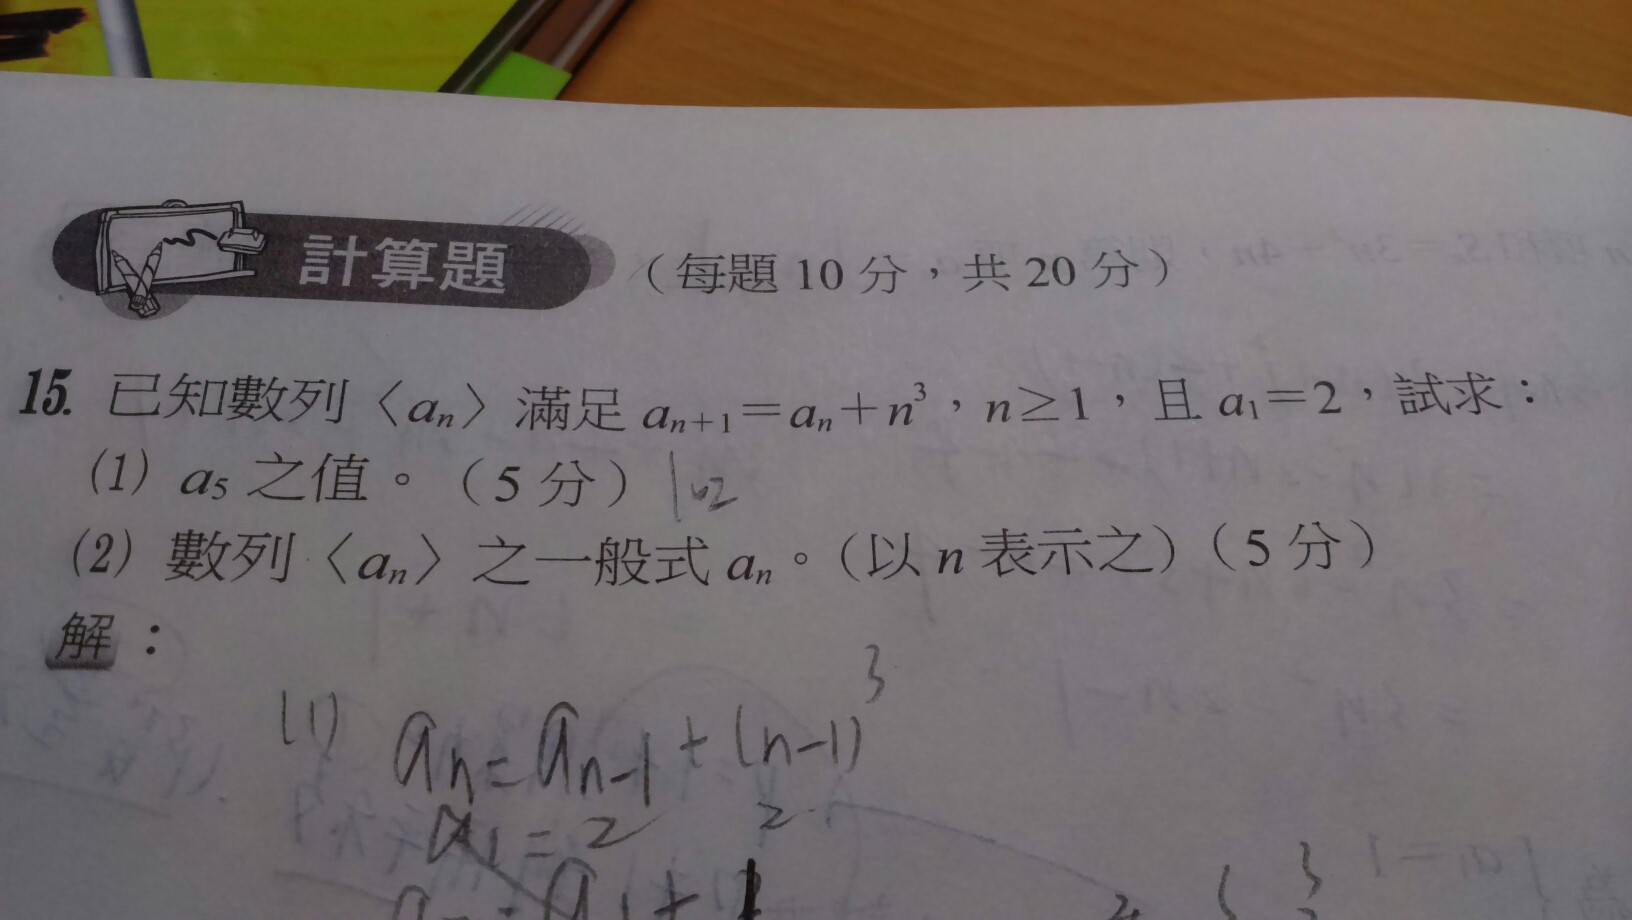 計算題（每題 10 分，共 20 分）
15. 已知數列〈aₙ〉滿足 aₙ₊₁＝aₙ＋n³，n≥1，且 a₁＝2，試求：
(1) a₅ 之值。（5 分） 102
(2) 數列〈aₙ〉之一般式 aₙ。（以 n 表示之）（5 分）
解：
(1) aₙ=aₙ₋₁+(n-1)³
a₁=2 2